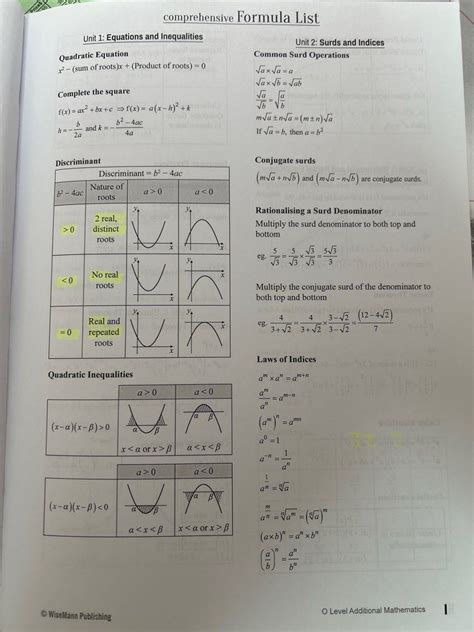 comprehensive Formula List
Unit 1: Equations and Inequalities
Quadratic Equation
x² − (sum of roots)x + (Product of roots) = 0
Complete the square
f(x) = ax² + bx + c ⇒ f(x) = a(x − h)² + k
h = −b/2a and k = −(b² − 4ac)/4a
Discriminant
Discriminant = b² − 4ac
b² − 4ac Nature of roots a > 0 a < 0
> 0 2 real, distinct roots y x y x
< 0 No real roots y x y x
= 0 Real and repeated roots y x y x
Quadratic Inequalities
a > 0 a < 0
(x−α)(x−β) > 0 α β α β
x < α or x > β α < x < β
a > 0 a < 0
(x−α)(x−β) < 0 α β α β
α < x < β x < α or x > β
Unit 2: Surds and Indices
Common Surd Operations
√a × √a = a
√a × √b = √ab
√a/√b = √(a/b)
m√a ± n√a = (m ± n)√a
If √a = b, then a = b²
Conjugate surds
(m√a + n√b) and (m√a − n√b) are conjugate surds.
Rationalising a Surd Denominator
Multiply the surd denominator to both top and
bottom
eg. 5/√3 = 5/√3 × √3/√3 = 5√3/3
Multiply the conjugate surd of the denominator to
both top and bottom
eg. 4/(3+√2) = 4/(3+√2) × (3−√2)/(3−√2) = (12−4√2)/7
Laws of Indices
aᵐ × aⁿ = aᵐ⁺ⁿ
aᵐ/aⁿ = aᵐ⁻ⁿ
(aᵐ)ⁿ = aᵐⁿ
a⁰ = 1
a⁻ⁿ = 1/aⁿ
a^(1/n) = ⁿ√a
a^(m/n) = ⁿ√aᵐ = (ⁿ√a)ᵐ
(a×b)ⁿ = aⁿ × bⁿ
(a/b)ⁿ = aⁿ/bⁿ
© WiseMann Publishing
O Level Additional Mathematics